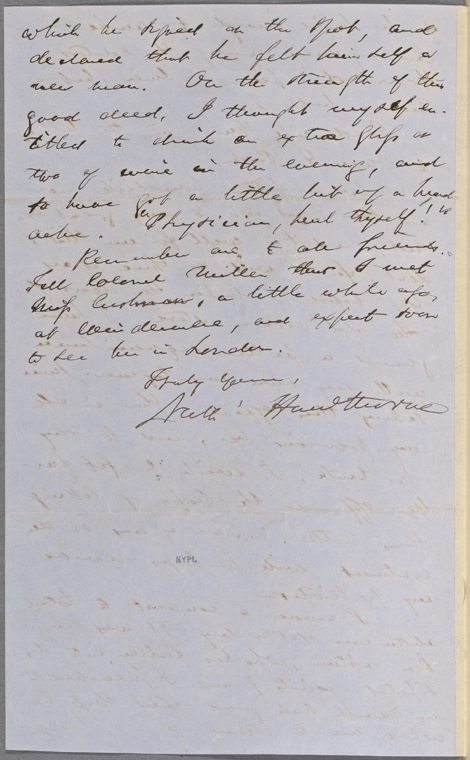 which he signed on the spot, and
declared that he felt himself a
new man. On the strength of this
good deed, I thought myself en-
titled to drink an extra glass or
two of wine in the evening, and
so have got a little bit of a head
ache. "Physician, heal thyself!"
Remember me to all friends.
Tell Colonel Miller that I met
Miss Cushman, a little while ago,
at Windermere, and expect soon
to see her in London.
Truly Yours,
Nath' Hawthorne
NYPL